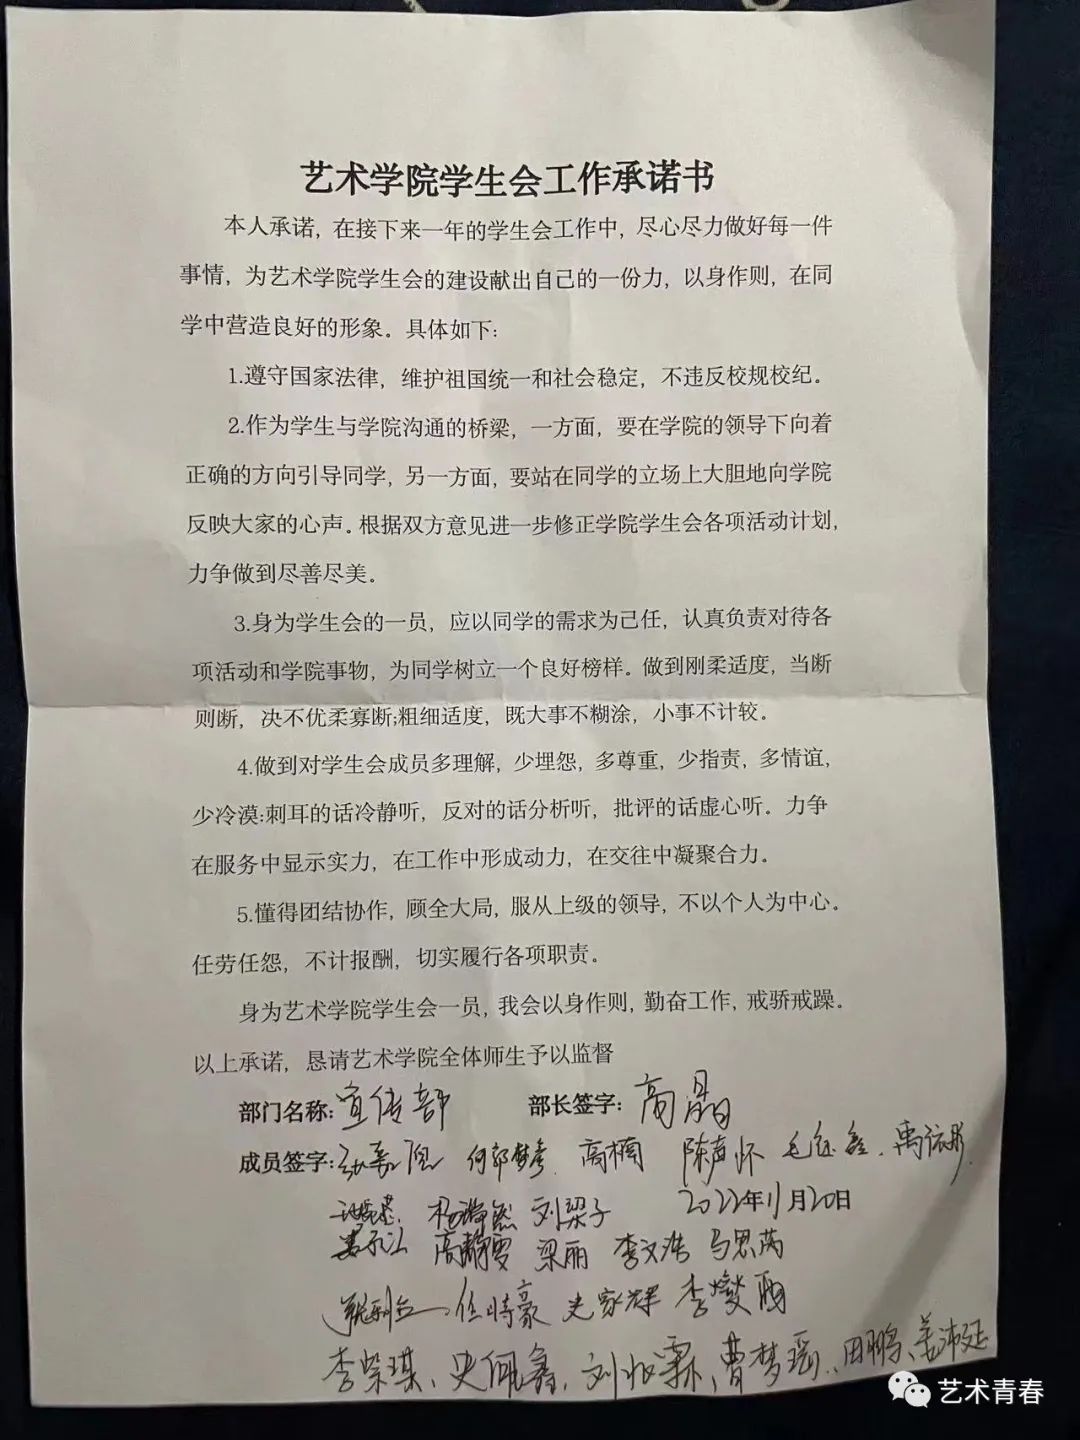 艺术学院学生会工作承诺书
本人承诺，在接下来一年的学生会工作中，尽心尽力做好每一件
事情，为艺术学院学生会的建设献出自己的一份力，以身作则，在同
学中营造良好的形象。具体如下：
1.遵守国家法律，维护祖国统一和社会稳定，不违反校规校纪。
2.作为学生与学院沟通的桥梁，一方面，要在学院的领导下向着
正确的方向引导同学，另一方面，要站在同学的立场上大胆地向学院
反映大家的心声。根据双方意见进一步修正学院学生会各项活动计划，
力争做到尽善尽美。
3.身为学生会的一员，应以同学的需求为己任，认真负责对待各
项活动和学院事物，为同学树立一个良好榜样。做到刚柔适度，当断
则断，决不优柔寡断;粗细适度，既大事不糊涂，小事不计较。
4.做到对学生会成员多理解，少埋怨，多尊重，少指责，多情谊，
少冷漠:刺耳的话冷静听，反对的话分析听，批评的话虚心听。力争
在服务中显示实力，在工作中形成动力，在交往中凝聚合力。
5.懂得团结协作，顾全大局，服从上级的领导，不以个人为中心。
任劳任怨，不计报酬，切实履行各项职责。
身为艺术学院学生会一员，我会以身作则，勤奋工作，戒骄戒躁。
以上承诺，恳请艺术学院全体师生予以监督
部门名称：宣传部 部长签字：高晶
成员签字： 何郭梦春 高楠 陈声怀 毛钰鑫
刘梁子 2022年11月20日
高静雯 梁丽 李文浩 马思芮
任特豪 史家辉 李燮雨
李荣琪、史佩鑫、刘收霖、曹梦瑶、田鹏、姜沛延
艺术青春